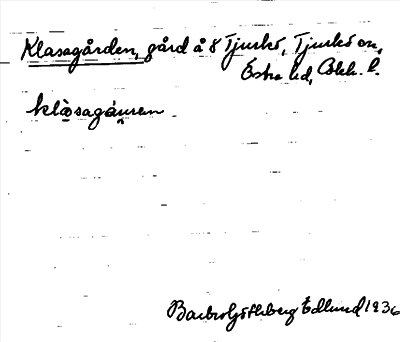 Klasagården, gård å 8 Tjurkö, Tjurkö sn,
Östra hd, Blek. l.
klàsagáuṛen
Barbro Götlberg Edlund 1936